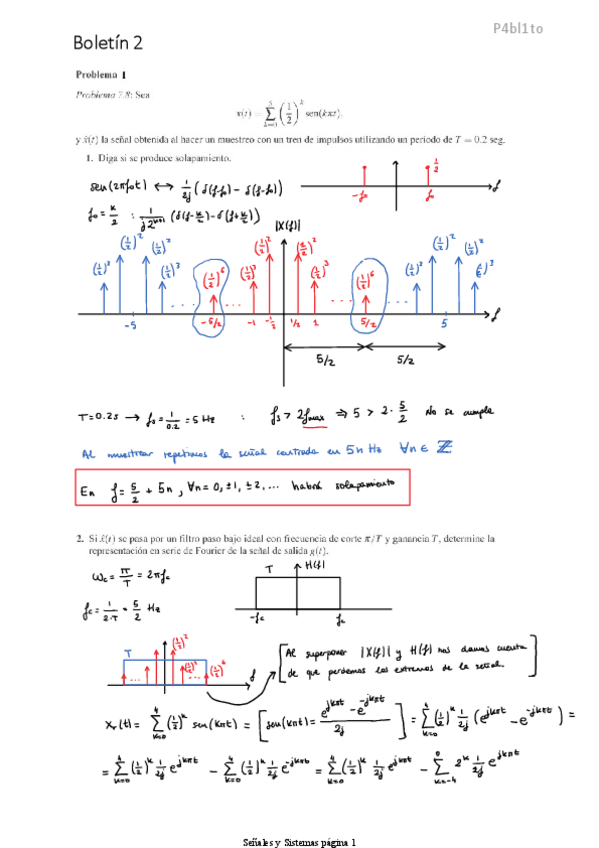 P4bl1to
Boletín 2
Problema 1
Problema 7.8: Sea
x(t) = ∑_{k=0}^{5} (1/2)^k sen(kπt),
y x̂(t) la señal obtenida al hacer un muestreo con un tren de impulsos utilizando un periodo de T = 0.2 seg.
1. Diga si se produce solapamiento.
sen(2πf₀t) ↔ 1/2j (δ(f-f₀) - δ(f-f₀))
1/2
-f₀ f₀ f
f₀ = k/2 : 1/j2^{k+1} (δ(f-k/2) - δ(f+k/2))
|X(f)|
(1/2)² (1/2)² (1/2)² (1/2)² (1/2)² (1/2)²
(1/2)³ (1/2)³ (1/2)⁶ (1/2)³ (1/2)³ (1/2)⁶ (1/2)² (1/2)³
-5 -5/2 -1 -1/2 1/2 1 5/2 5 f
5/2 5/2
T=0.2s → fs = 1/0.2 = 5 Hz : fs > 2fmax ⇒ 5 > 2·5/2 No se cumple
Al muestrear repetimos la señal centrada en 5n Hz ∀n ∈ ℤ
En f = 5/2 + 5n, ∀n = 0, ±1, ±2, ... habrá solapamiento
2. Si x̂(t) se pasa por un filtro paso bajo ideal con frecuencia de corte π/T y ganancia T, determine la
representación en serie de Fourier de la señal de salida g(t).
ωc = π/T = 2πfc
T H(f)
fc = 1/2·T = 5/2 Hz
-fc fc
T (1/2)² (1/2)³ (1/2)⁶ f
Al superponer |X(f)| y H(f) nos damos cuenta
de que perdemos los extremos de la señal.
xr(t) = ∑_{k=0}^{4} (1/2)^k sen(kπt) = [sen(kπt) = (e^{jkπt} - e^{-jkπt})/2j] = ∑_{k=0}^{4} (1/2)^k 1/2j (e^{jkπt} - e^{-jkπt}) =
= ∑_{k=0}^{4} (1/2)^k 1/2j e^{jkπt} - ∑_{k=0}^{4} (1/2)^k 1/2j e^{-jkπt} = ∑_{k=0}^{4} (1/2)^k 1/2j e^{jkπt} - ∑_{k=-4}^{0} 2^k 1/2j e^{jkπt}
Señales y Sistemas página 1